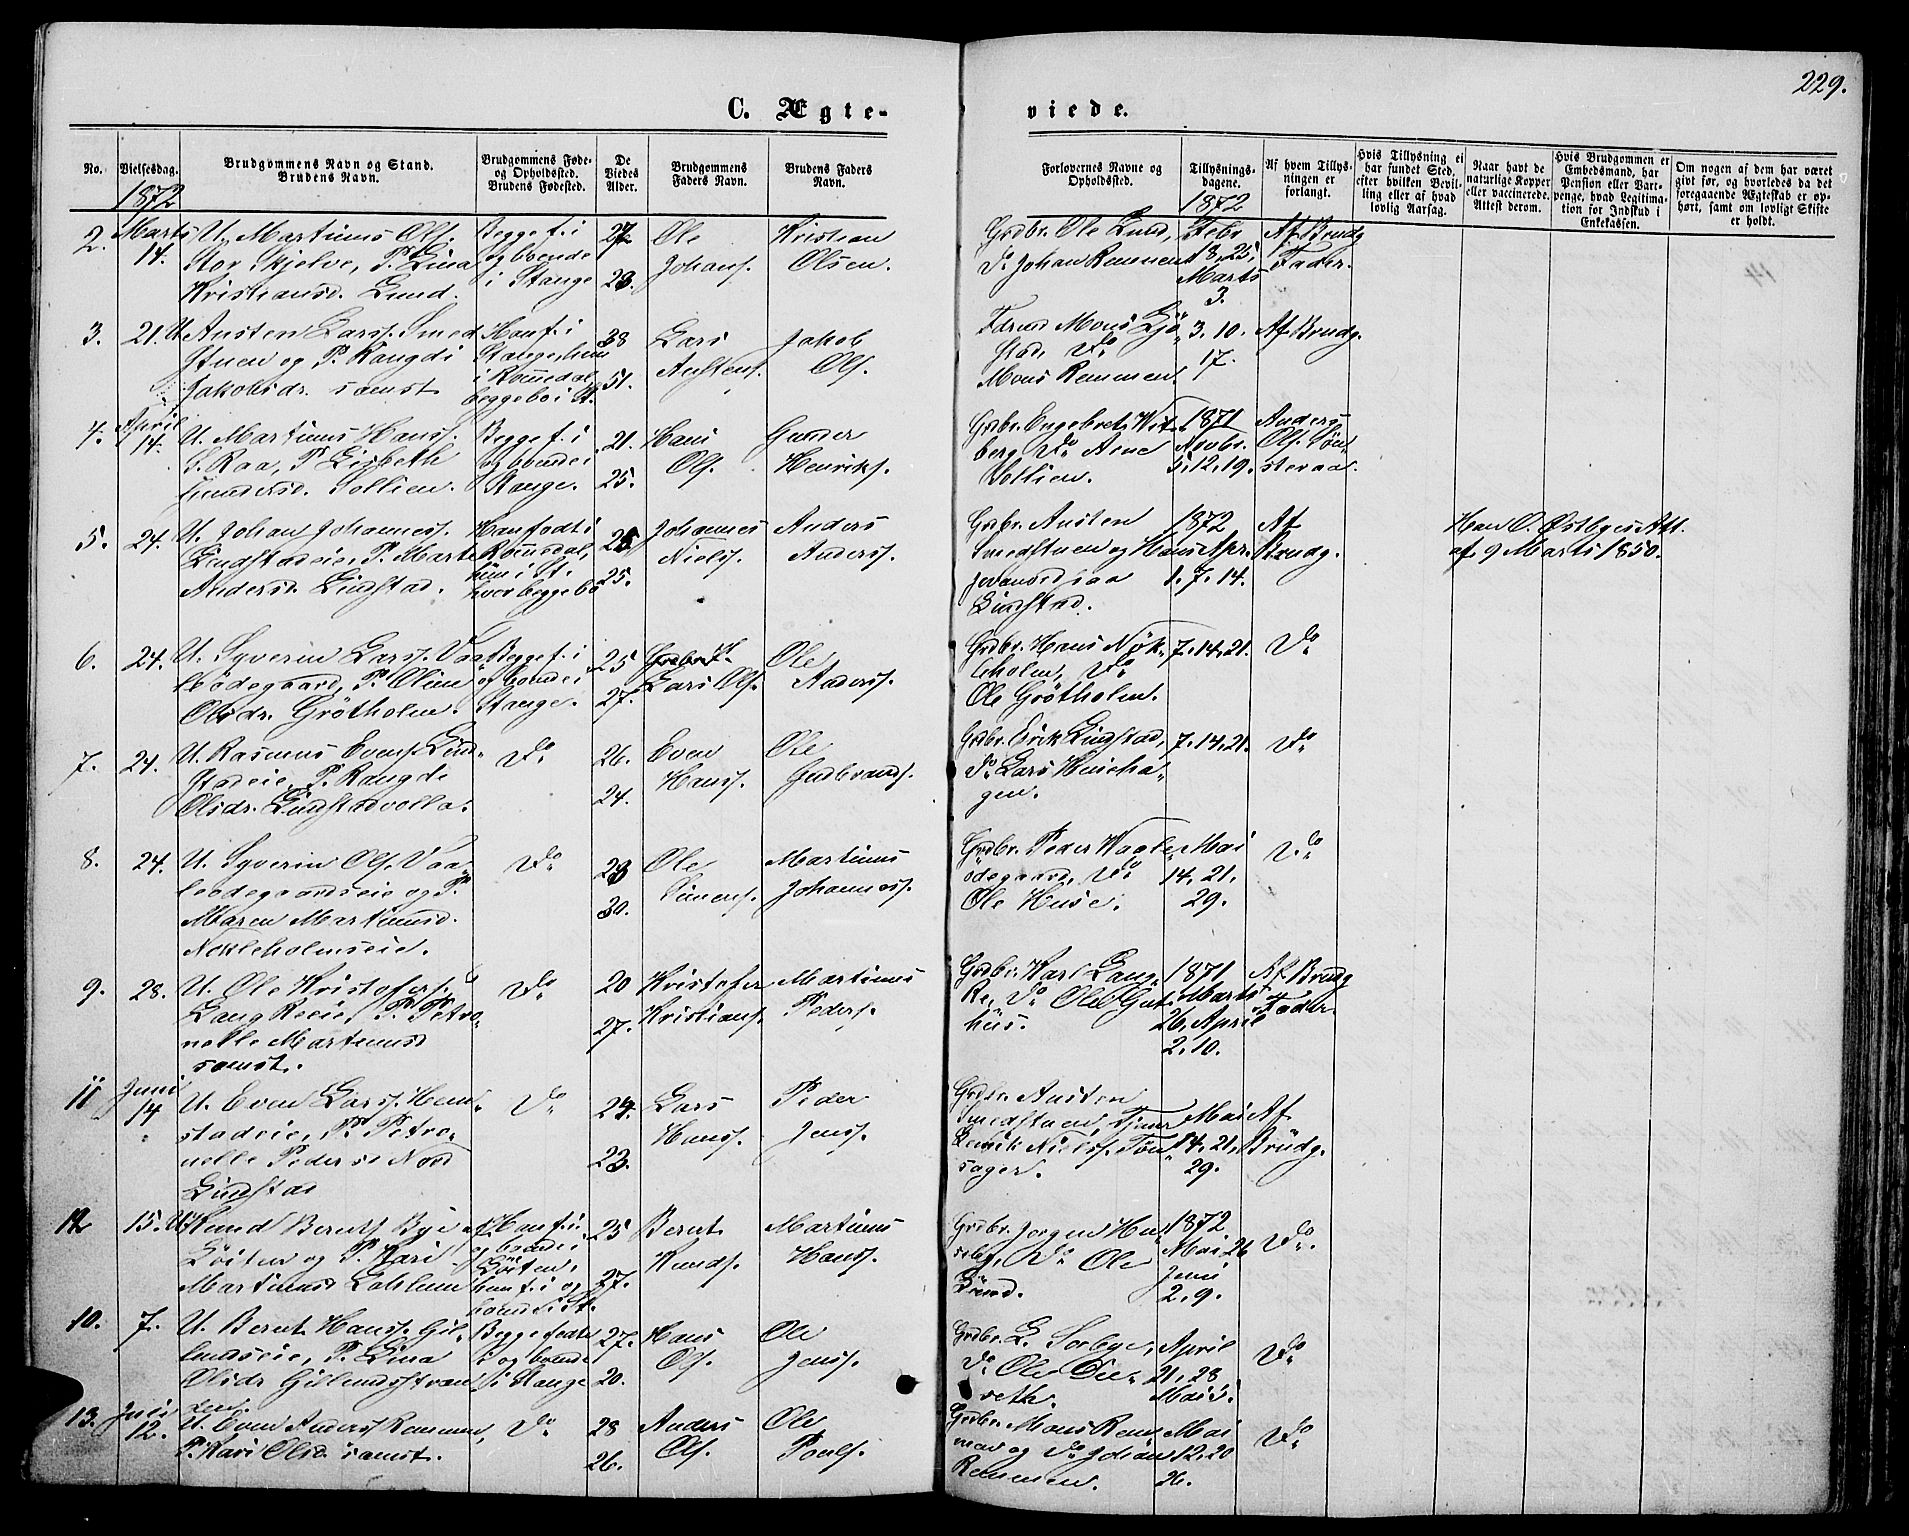 229.
C. Ægte-
viede.
No.
Vielsesdag.
Brudgommens Navn og Stand.
Brudens Navn.
Brudgommens Føde-
og Opholdssted.
Brudens Fødested.
De
Viedes
Alder.
Brudgommens
Faders Navn.
Brudens Faders
Navn.
Forlovernes Navne og
Opholdssted.
Tillysnings-
dagene.
Af hvem Tillys-
ningen er
forlangt.
Hvis Tillysning ei
har fundet Sted,
efter hvilken Bevil-
ling eller af hvad
lovlig Aarsag.
Naar havt de
naturlige Kopper
eller vaccinerede.
Attest derom.
Hvis Brudgommen er
Embedsmand, har
Pension eller Vart-
penge, hvad Legitima-
tion for Indskud i
Enkekassen.
Om nogen af dem har været
givt før, og hvorledes da det
foregaaende Ægteskab er op-
hørt, samt om lovligt Skifte
er holdt.
1872
1872
2. Marts 14.
U. Martinus Ols.
Stor Skjelve, P. Lina
Kristiansd. Lund.
Begge f. i
og boende
i Stange
27
23.
Ole
Johans.
Kristian
Olsen.
Grdbr. Ole Lund,
Do Johan Remmen
Febr.
18, 25,
Marts
3.
Af Brudg
Fader.
3. 21. U. Austen Larss. Smed
stuen og P. Rangdi
Jakobsdr. samst
Han f. i
Stange, hun
i Romedal
begge bo i St.
38
51.
Lars
Austens.
Jakob
Ols.
Mons Remmen.
3. 10.
17.
Af Brudg.
4. April 14.
U. Martinus Hanss.
S. Raa, P. Lisbeth
Gundersd. Sollien.
Begge f. i
og boende i
Stange.
21.
25.
Hans
Ols.
Gunder
Henriks.
Grdbr. Engebret Wit-
berg, Do Arne
Sollien.
1871
Novbr.
5. 12. 19.
Anders
Ols. Søn-
steraa.
5. 24. U. Johan Johanness.
Lindstadeie, P. Marte
Andersd. Lindstad.
Han født i
Romedal,
hun i St.
hvor begge bo
25
25.
Johannes
Nielss.
Anders
Anderss.
Grdbr. Austen
Smedstuen og Hans
Lindstad.
1872
Apr.
1. 7. 14.
Af
Brudg.
Han O. Østbyes Att.
af 9 Marts 1850.
6. 24. U. Syverin Larss. Vaa
leødegaard, P. Oline
Olsdr. Grötholm.
Begge f. i
og boende i
Stange.
25
27.
Lars Ols.
Ole
Anderss.
Grdbr. Hans Nök-
leholm, Do
Ole Grötholm.
7. 14. 21.
Do
7. 24. U. Rasmus Evens. Lind-
stadeie, P. Rangdi
Olsdr. Lindstadvolla.
Do
26.
24.
Even
Hanss.
Ole
Gudbrands.
Grdbr. Erik Lindstad,
Do Lars Huseha-
gen.
7. 14. 21.
Do
8. 24. U. Syverin Ols. Vaa-
leødegaardseie og P.
Maren Martinusd.
Nökleholmseie.
Do
23
30.
Ole
Simens.
Martinus
Johanness.
Grdbr. Peder Waale-
ödegaard, Do
Ole Huse.
Mai
14. 21.
29.
Do
9. 28. U. Ole Kristofers.
Lang Reeie, P. Petro-
nelle Martinusd
samst.
Do
20
27.
Kristofer
Kristians.
Martinus
Peders.
Grdbr. Karl Lang-
Re, Do Ole Gut-
hus.
1871
Marts
26. April
2. 10.
Af Brudg
Fader
11 Juni 14
U. Even Larss. Hem-
stadeie, P. Petro-
nelle Pedersd Nord
Lindstad
Do
24.
23.
Lars
Hanss.
Peder
Jenss.
Grdbr. Austen
Smedstuen,
Nielss. Tøn-
sager.
Mai
14. 21.
29.
Af
Brudg.
12 15. U. Knud Bernts. Bye
Löiten og P. Kari
Martinusd
Han f. i
og boende i
Löiten,
hun f. i og
boende i St.
25
27.
Bernt
Knuds.
Martinus
Hanss.
Grdbr. Jørgen Hu-
seby, Do Ole
1872
Mai 26
Juni
2. 9.
Do
10. 7. U. Bernt Hanss. Gil-
lundseie, P. Lina
Olsdr Gillundstran
den.
Begge födte
i og boende
i Stange
27.
20.
Hans
Ols.
Ole
Jenss.
Grdbr. L. Sorbye,
Do Ole Die-
seth.
April
21, 28
Mai 5.
Do
13. Juli 12.
U. Even Anderss Remmen,
P. Kari Olsd samst.
Do
28
26.
Anders
Ols.
Ole
Pouls.
Grdbr. Mons Rem-
men og Do Johan
Remmen.
Mai
12. 20
26.
Do